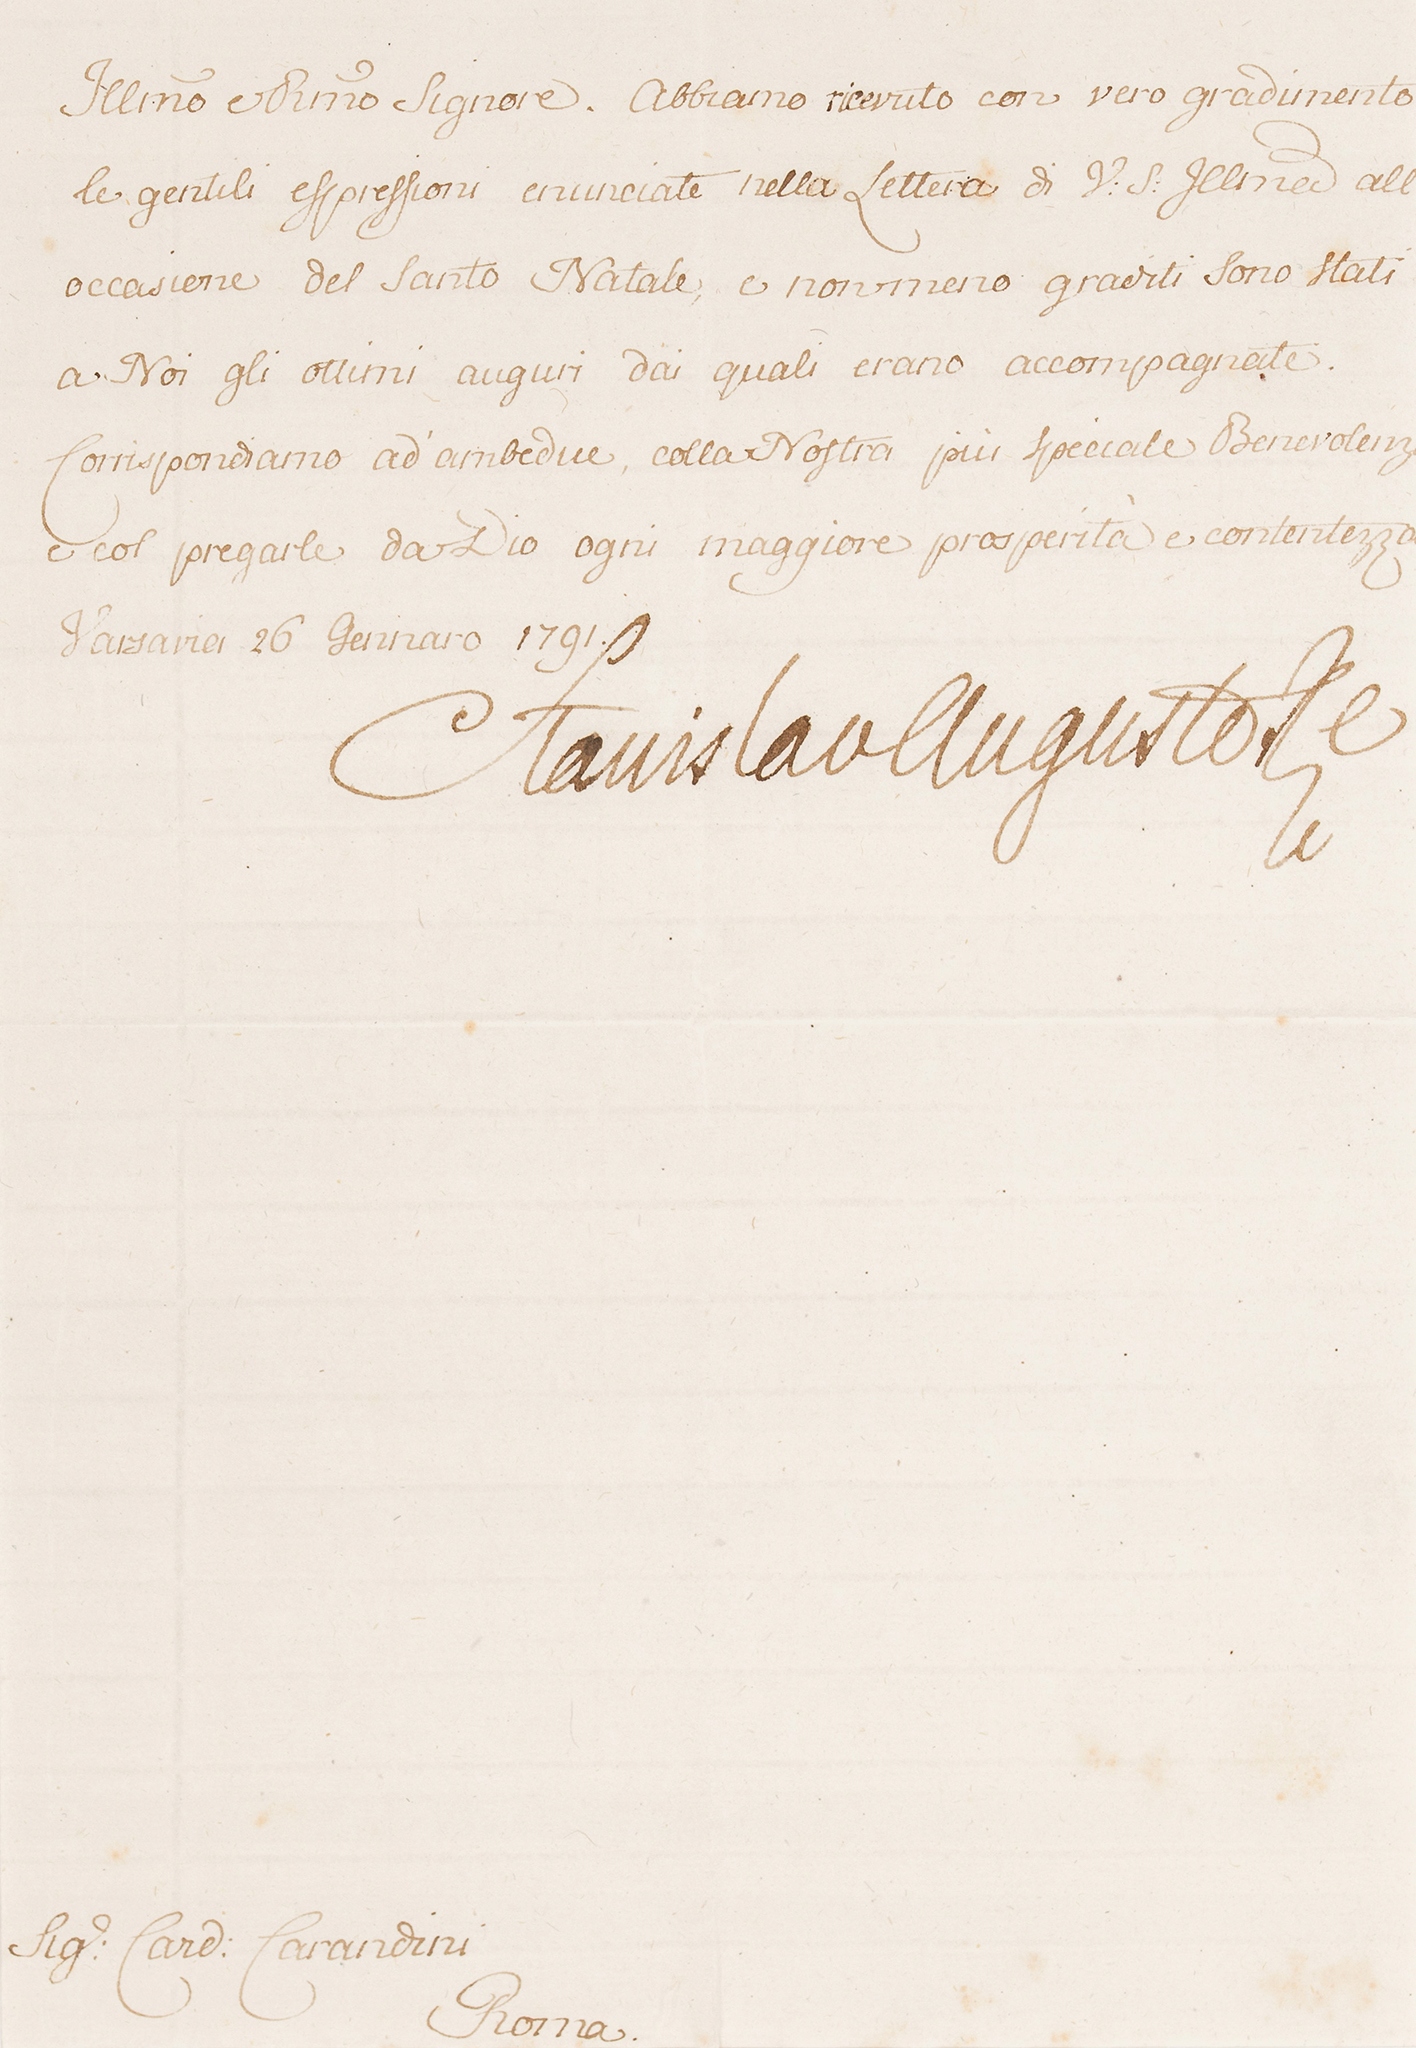 Illmo e Rmo Signore. Abbiamo ricevuto con vero gradimento
le gentili espressioni enunciate nella Lettera di V: S: Illma all
occasione del Santo Natale, e non meno graditi sono stati
a Noi gli ottimi auguri dai quali erano accompagnate.
Corrispondiamo ad'ambedue, colla Nostra più speciale Benevolenz
e col pregarle da Dio ogni maggiore prosperità e contentezza
Varsavia 26 Gennaro 1791.
Stanislao Augusto Re
Sigr: Card: Carandini
Roma.